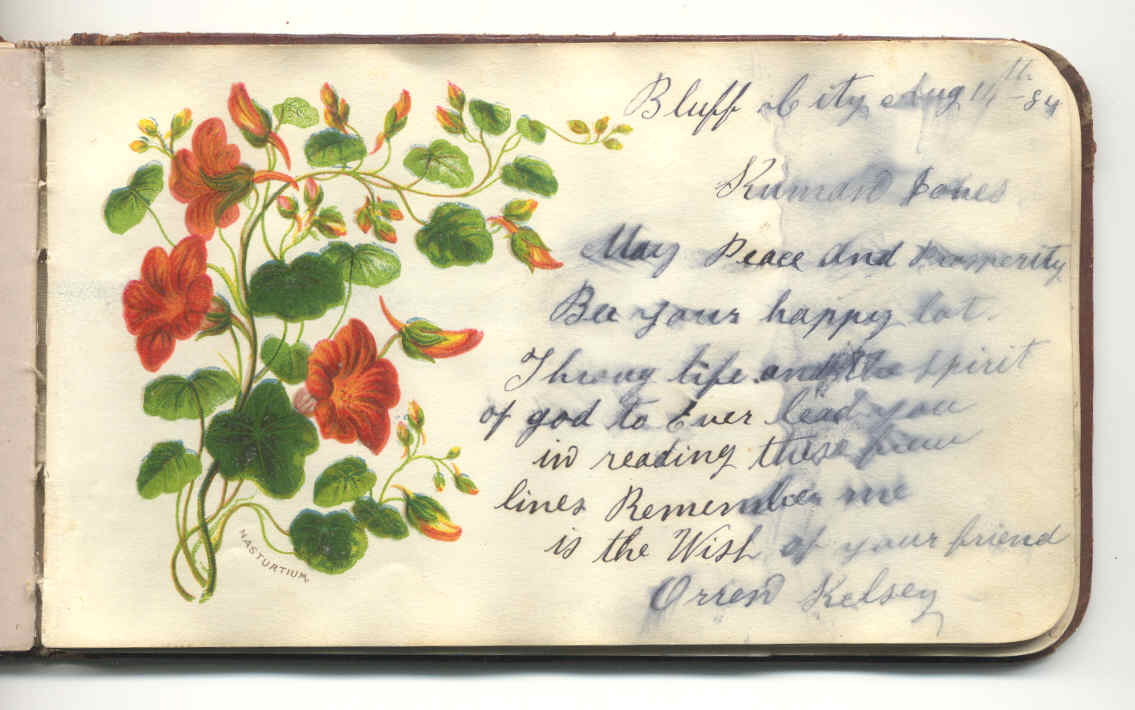 Bluff City Aug 14th - 84
Kumand Jones
May Peace and Prosperity
Bee your happy lot.
Throug life and the spirit
of god to Ever lead you
in reading these few
lines Remember me
is the Wish of your friend
Orren Kelsey
NASTURTIUM.